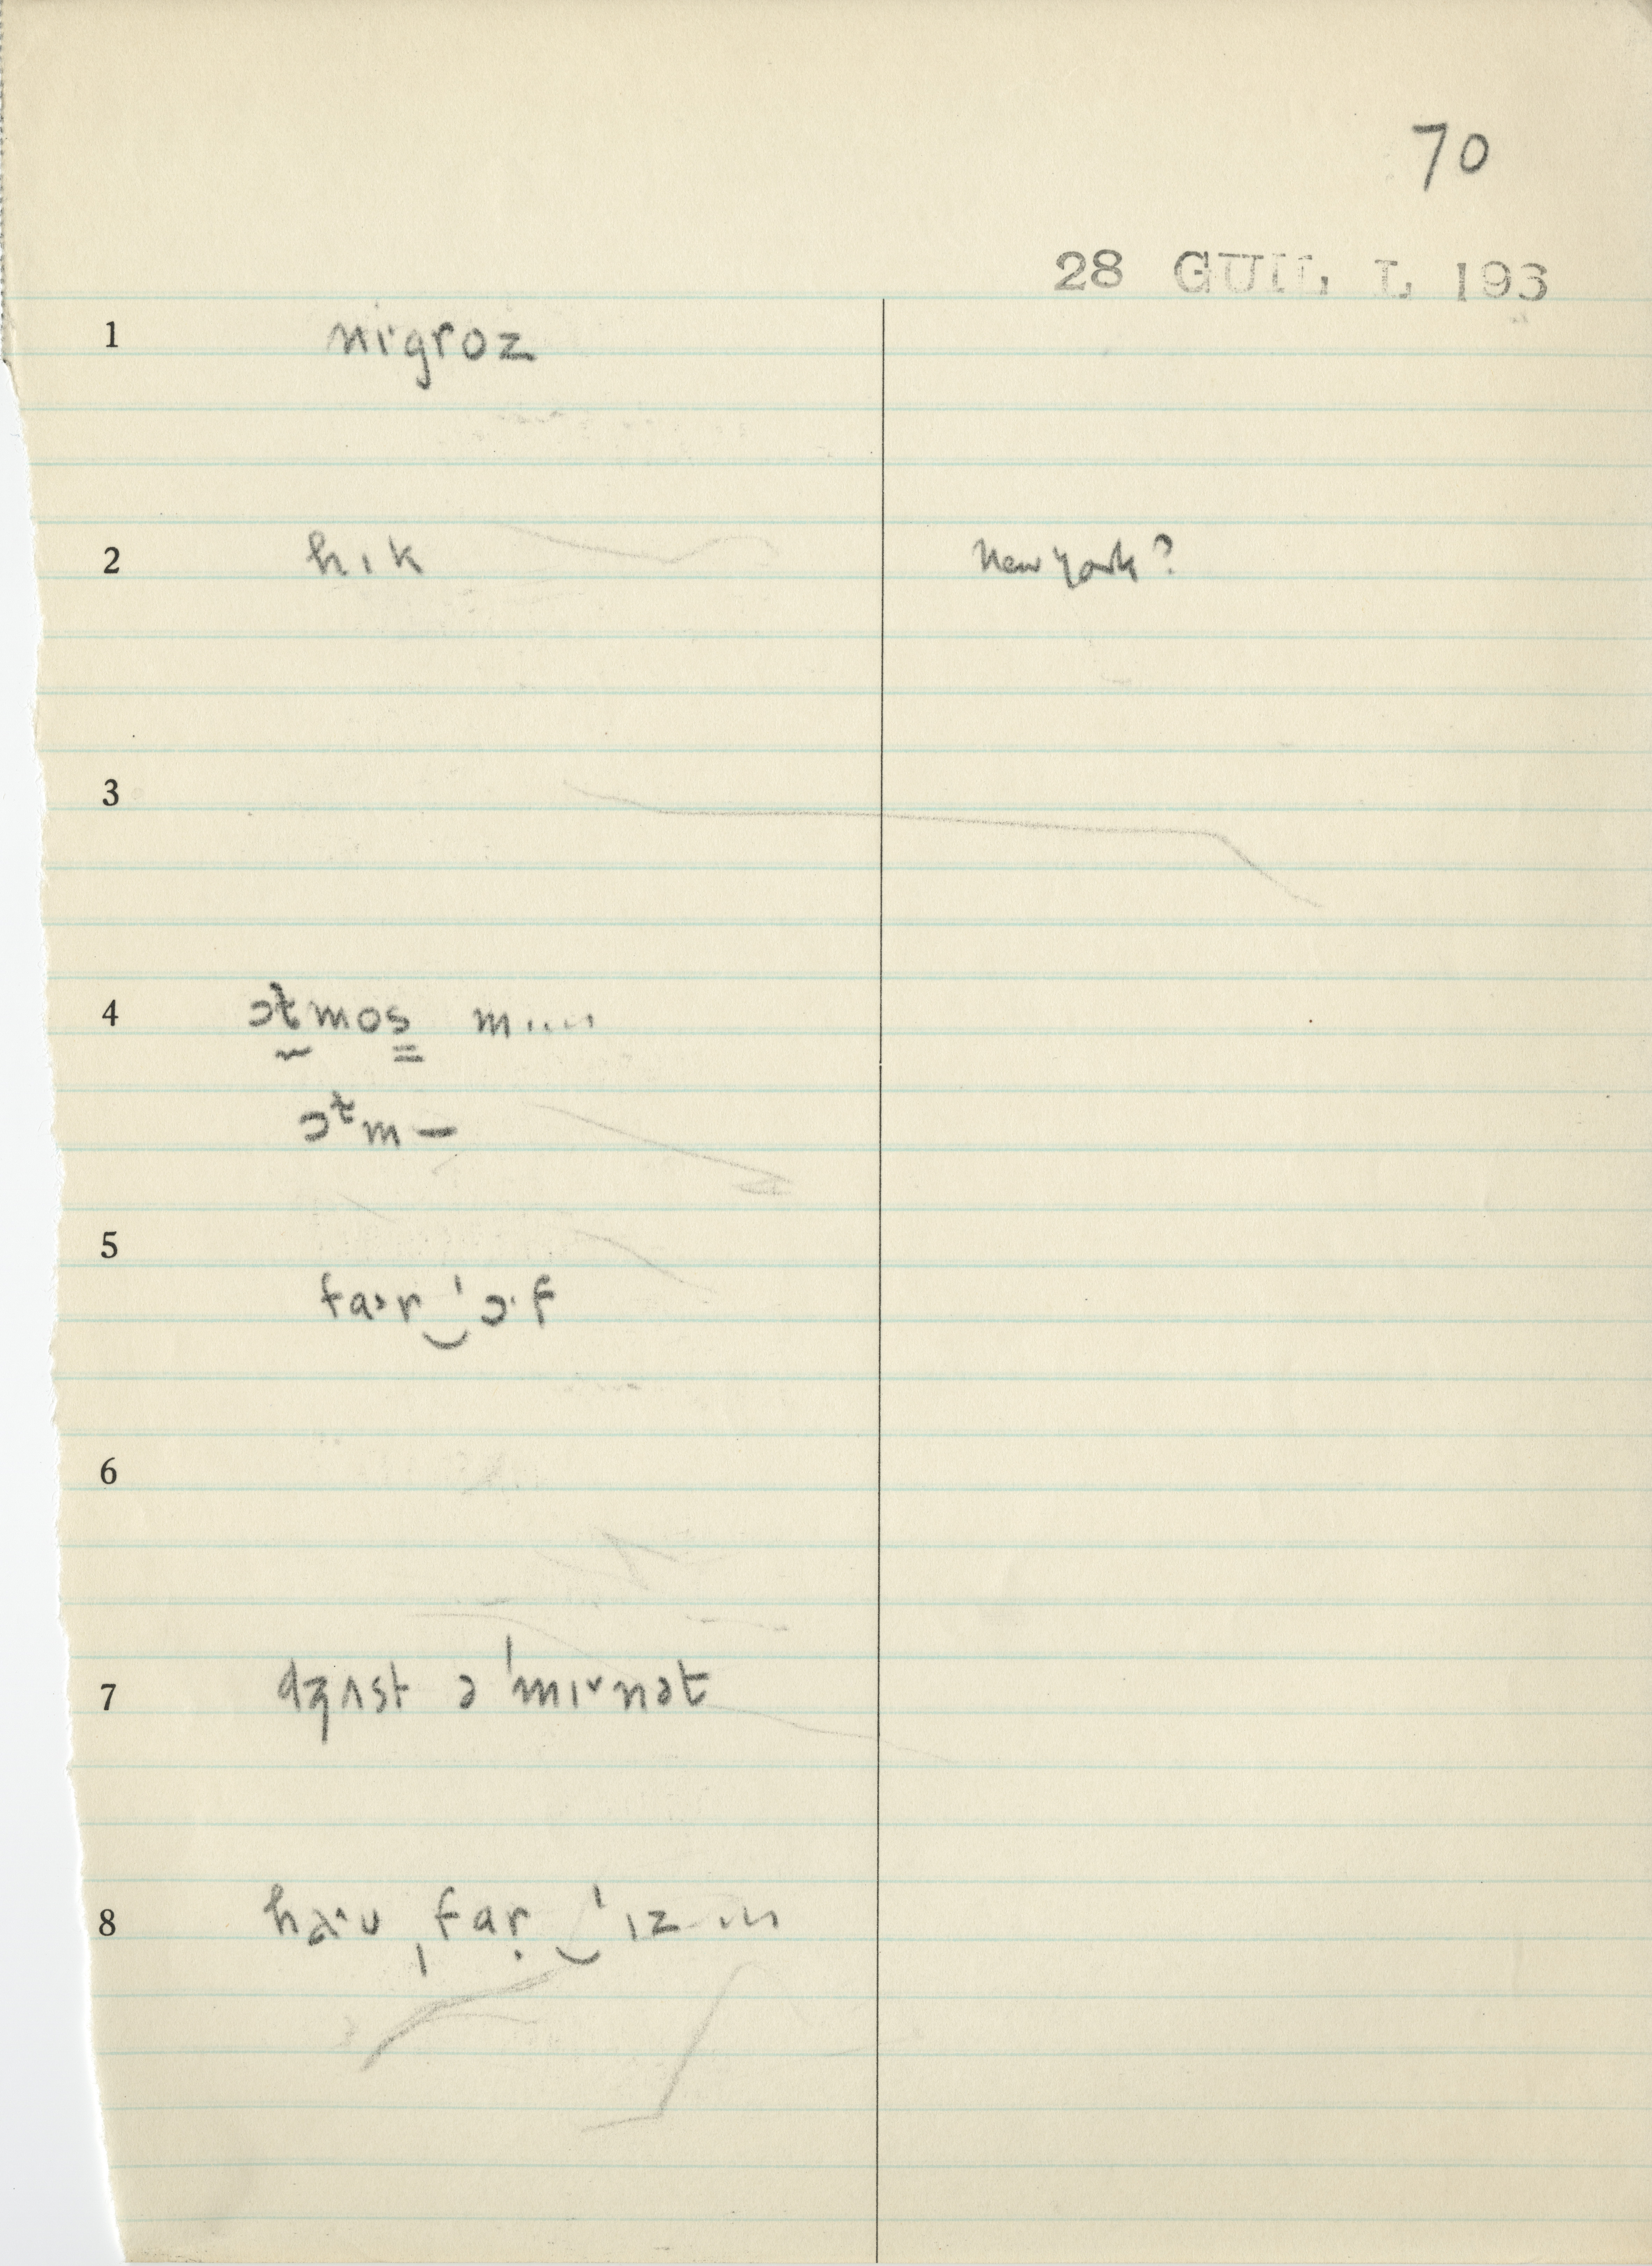 70
28 GUIL L 193
1 niˑgroz
2 hɪk New York?
3
4 ɔt̰mos̳ m....
ɔᵗm —
5 faˑɚr‿ˈɔˑf
6
7 dʒʌst ə ˈmɪˇnət
8 haˑʊ ˌfaṛ‿ˈɪz ...